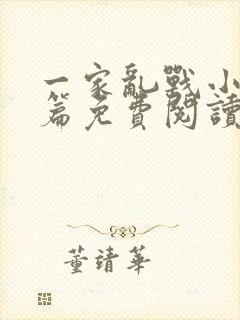 一家亂戰小
篇免費閱讀
董靖華